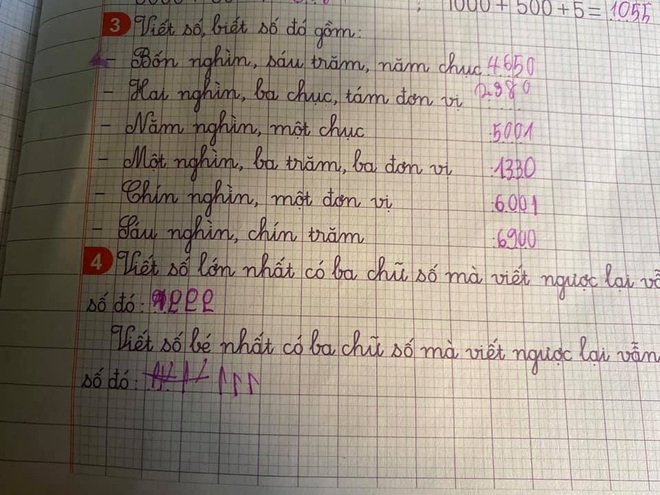 1000 + 500 + 5 = 1055
3 Viết số, biết số đó gồm:
- Bốn nghìn, sáu trăm, năm chục 4650
- Hai nghìn, ba chục, tám đơn vị 2380
- Năm nghìn, một chục 5001
- Một nghìn, ba trăm, ba đơn vị 1330
- Chín nghìn, một đơn vị 6001
- Sáu nghìn, chín trăm 6900
4 Viết số lớn nhất có ba chữ số mà viết ngược lại vẫ
số đó:
Viết số bé nhất có ba chữ số mà viết ngược lại vẫn
số đó: 111